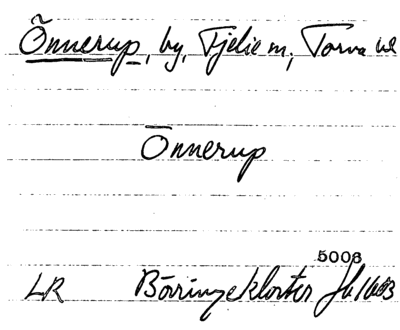 Önnerup, by, Fjelie sn, Torna hd
Önnerup
5006
LR Börringekloster Jb 1663